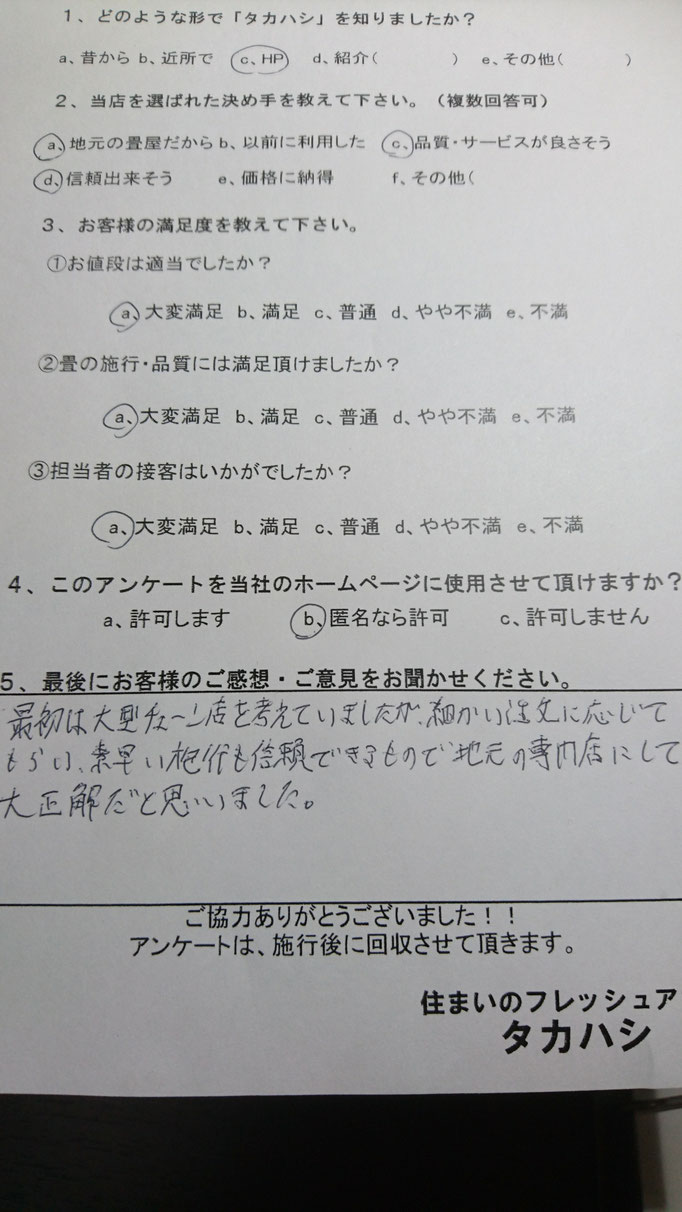 1、どのような形で「タカハシ」を知りましたか？
a、昔から b、近所で c、HP d、紹介( ) e、その他( )
2、当店を選ばれた決め手を教えて下さい。（複数回答可）
a、地元の畳屋だから b、以前に利用した c、品質・サービスが良さそう
d、信頼出来そう e、価格に納得 f、その他(
3、お客様の満足度を教えて下さい。
①お値段は適当でしたか？
a、大変満足 b、満足 c、普通 d、やや不満 e、不満
②畳の施行・品質には満足頂けましたか？
a、大変満足 b、満足 c、普通 d、やや不満 e、不満
③担当者の接客はいかがでしたか？
a、大変満足 b、満足 c、普通 d、やや不満 e、不満
4、このアンケートを当社のホームページに使用させて頂けますか？
a、許可します b、匿名なら許可 c、許可しません
5、最後にお客様のご感想・ご意見をお聞かせください。
最初は大型チェーン店を考えていましたが、細かい注文に応じて
もらい、素早い施行も信頼できるもので地元の専門店にして
大正解だと思いました。
ご協力ありがとうございました！！
アンケートは、施行後に回収させて頂きます。
住まいのフレッシュア
タカハシ